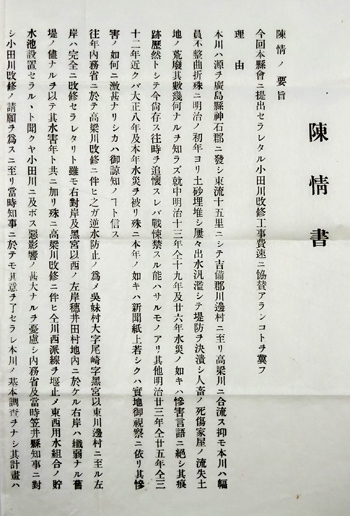 陳情書
陳情ノ要旨
今回本縣會ニ提出セラレタル小田川改修工事費速ニ協賛アランコトヲ冀フ
理由
本川ハ源ヲ廣島縣神石郡ニ發シ東流十五里ニシテ吉備郡川邊村ニ至リ高梁川ニ合流ス抑モ本川ハ幅
員不整曲折殊ニ明治ノ初年ヨリ土砂堆埀シ屢々出水汎濫シテ堤防ヲ決潰シ人畜ノ死傷家屋ノ流失土
地ノ荒廢其數幾何ナルヲ知ラズ就中明治十三年仝十九年及廿六年水災ノ如キハ慘害言語ニ絶シ其痕
跡歴然トシテ今尙存ス往時ヲ追懷スレバ戰悚禁スル能ハサルモノアリ其他明治廿三年仝廿五年仝三
十二年近クハ大正八年及本年水災ヲ被リ殊ニ本年ノ如キハ新聞紙上若シクハ實地御視察ニ依リ其慘
害ノ如何ニ激甚ナリシカハ御諒知ノコト信ス
往年内務省ニ於テ高梁川改修ニ件ヒ之ガ逆水防止ノ爲メ呉妹村大字尾崎字黑宮以東川邊村ニ至ル左
岸ハ完全ニ改修セラレタリト雖モ右對岸及黑宮以西ノ左岸穗井田村地内ニ於ケル右岸ハ纖弱ナル舊
堤ノ儘ナルヲ以テ其水害年ト共ニ加リ殊ニ高梁川改修ニ件ヒ仝川西派線ヲ堰止メ東西用水組合ノ貯
水池設置セラル丶ト聞クヤ小田川ニ及ボス惡影響ノ甚大ナルヲ憂慮シ内務省及當時笠井縣知事ニ對
シ小田川改修ノ請願ヲ爲スニ至リ當時知事ニ於テモ其意ヲ了セラレ本川ノ基本調査ヲナシ其計畫ハ